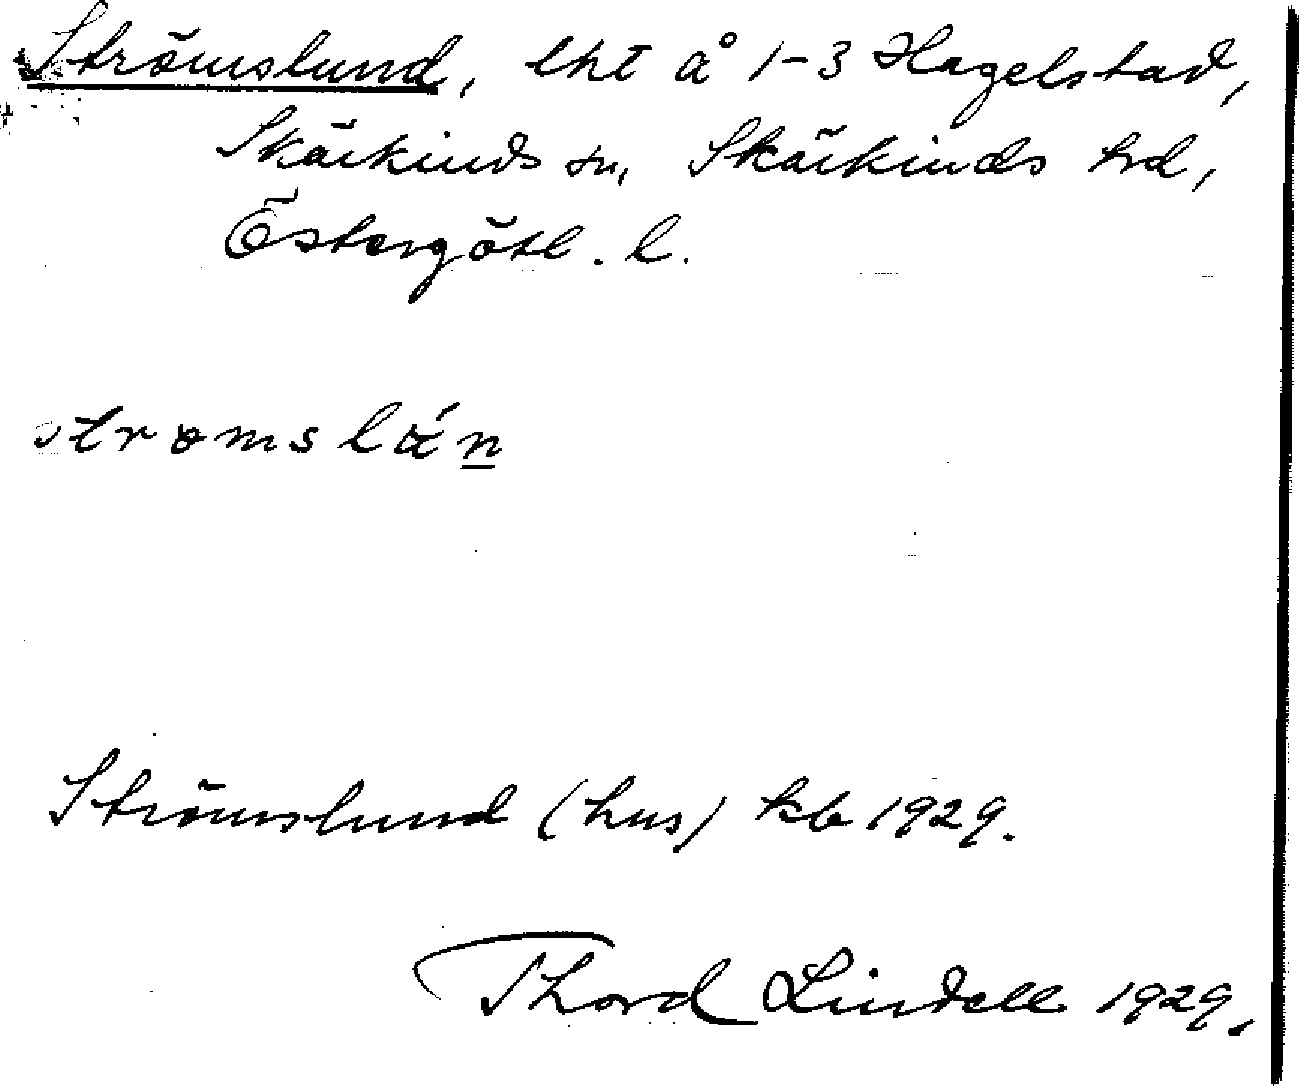 Strömslund, lht å 1-3 Hagelstad,
Skärkinds sn, Skärkinds hd,
Östergötl. l.
strømslán
Strömslund (hus) kb 1929.
Thord Lindell 1929.